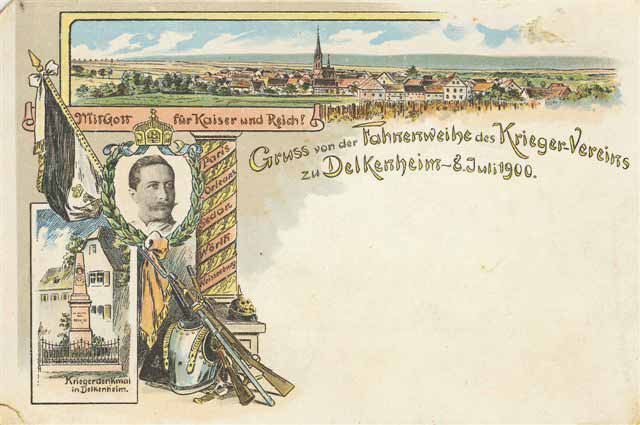 Mit Gott für Kaiser und Reich!
Gruss von der Fahnenweihe des Krieger-Vereins
zu Delkenheim – 8. Juli 1900.
Paris
Orleans
Sedan
Wörth
Weissenburg
Kriegerdenkmal
in Delkenheim.